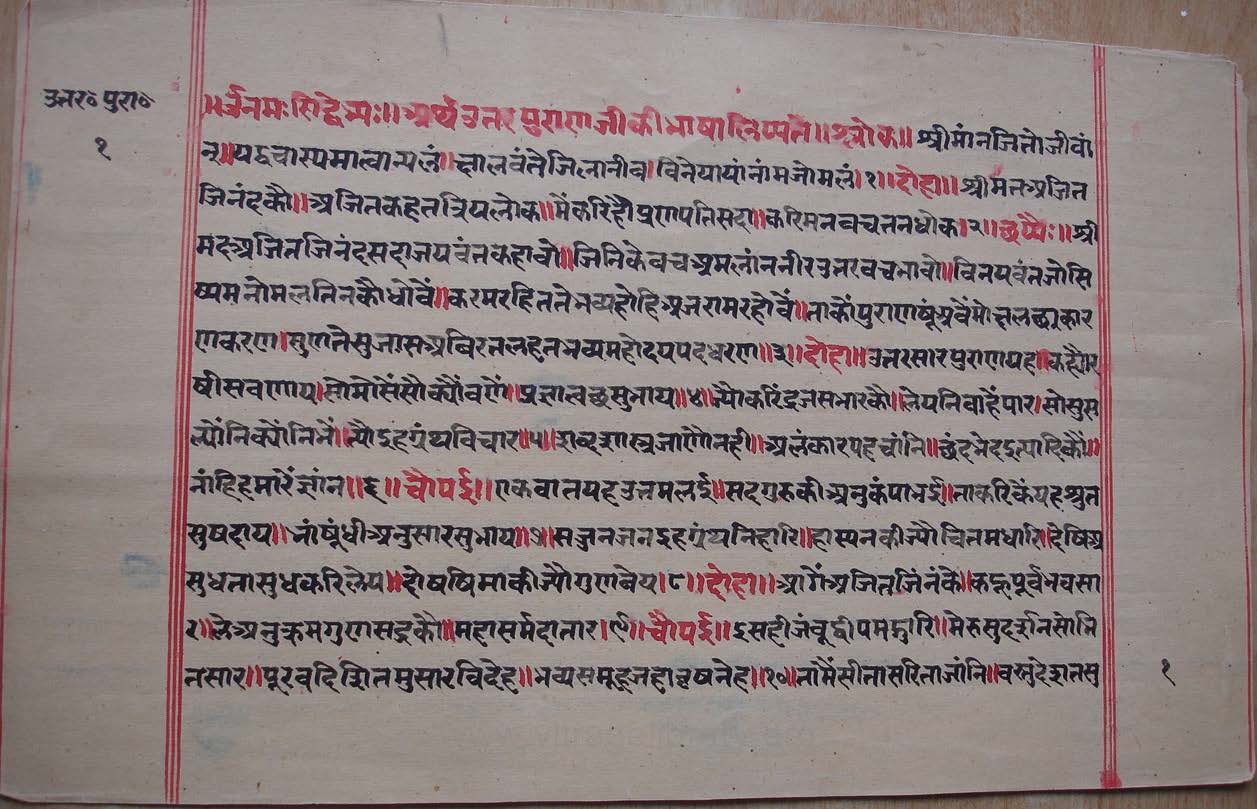 उत्तर॰ पुरा॰
१
॥ॐनमःसिद्धेभ्यः॥ अथउत्तरपुराणजीकीभाषालिष्यते॥ श्लोक॥ श्रीमांनजितोजीयां
न्॥यद्वचास्यमलान्यलं॥क्षालवंतेजिलानीव।विनेयायांनांमनोमलं।१।दोहा॥ श्रीमतअजित
जिनंदकौ॥अजितकहतत्रियलोक॥मैंकरिहौंप्रणपतिसदा॥करिमनवचतनधोक।२।छप्पैः॥श्री
मदअजितजिनंदसदाजयवंतकहावो॥जिनिकेवचअमलांननीरउत्तरवचभावो॥विनयवंतजोसि
ष्यमनोमलतिनकौधोवें॥करमरहिततेभव्यहोहिअजरामरहोवें॥ताकौंपुराण
सुणतेसुजासअविरतलहतभव्यमहोदयपदधरण॥३॥दोहा॥उत्तरसारपुराणयह।कह्यौर
षीसवणाय।सोमोसैंसौक्यौंवणौं।प्रज्ञातुच्छसुभाय॥४॥ज्यौकरिंद्रजसभारकौ॥लेयनिवाहेंपार।सोसुस
ल्यौंनिक्यौंनिभैं।त्यौइहग्रंथविचार॥५॥शब्दशास्त्रजाणौंनही॥अलंकारपहचांनि॥छंदभेदइत्यादिकौ॥
नांहिहमारैंज्ञांन॥६॥चौपई॥एकवातयहउत्तमलई॥सदगुरुकीअनुकंपाभई॥ताकरिकेंयहश्रुत
सुषदाय॥भांषूंधीअनुसारसुभाय॥७॥सज्जनजनइहग्रंथनिहारि॥हास्यनकीज्यौचितमधारि॥देषिअ
सुधतासुधकरिलेय॥दोषषिमाकीज्यौगुणवेय।८॥दोहा॥आगैंअजितजिनंके॥कहूपूर्वभवसा
र॥लेअनुक्रमगुणसद्रकौ॥महासर्मदातार।९॥चौपई॥इसहीजंबूद्वीपमझारि॥मेरुसुदर्शनसोभि
तसार॥पूरवदिशितसुसारविदेह॥भव्यसमूहजहाब्रषनेह॥१०॥तामैंसीतासरिताजांनि॥वत्सुदेशतसु
१